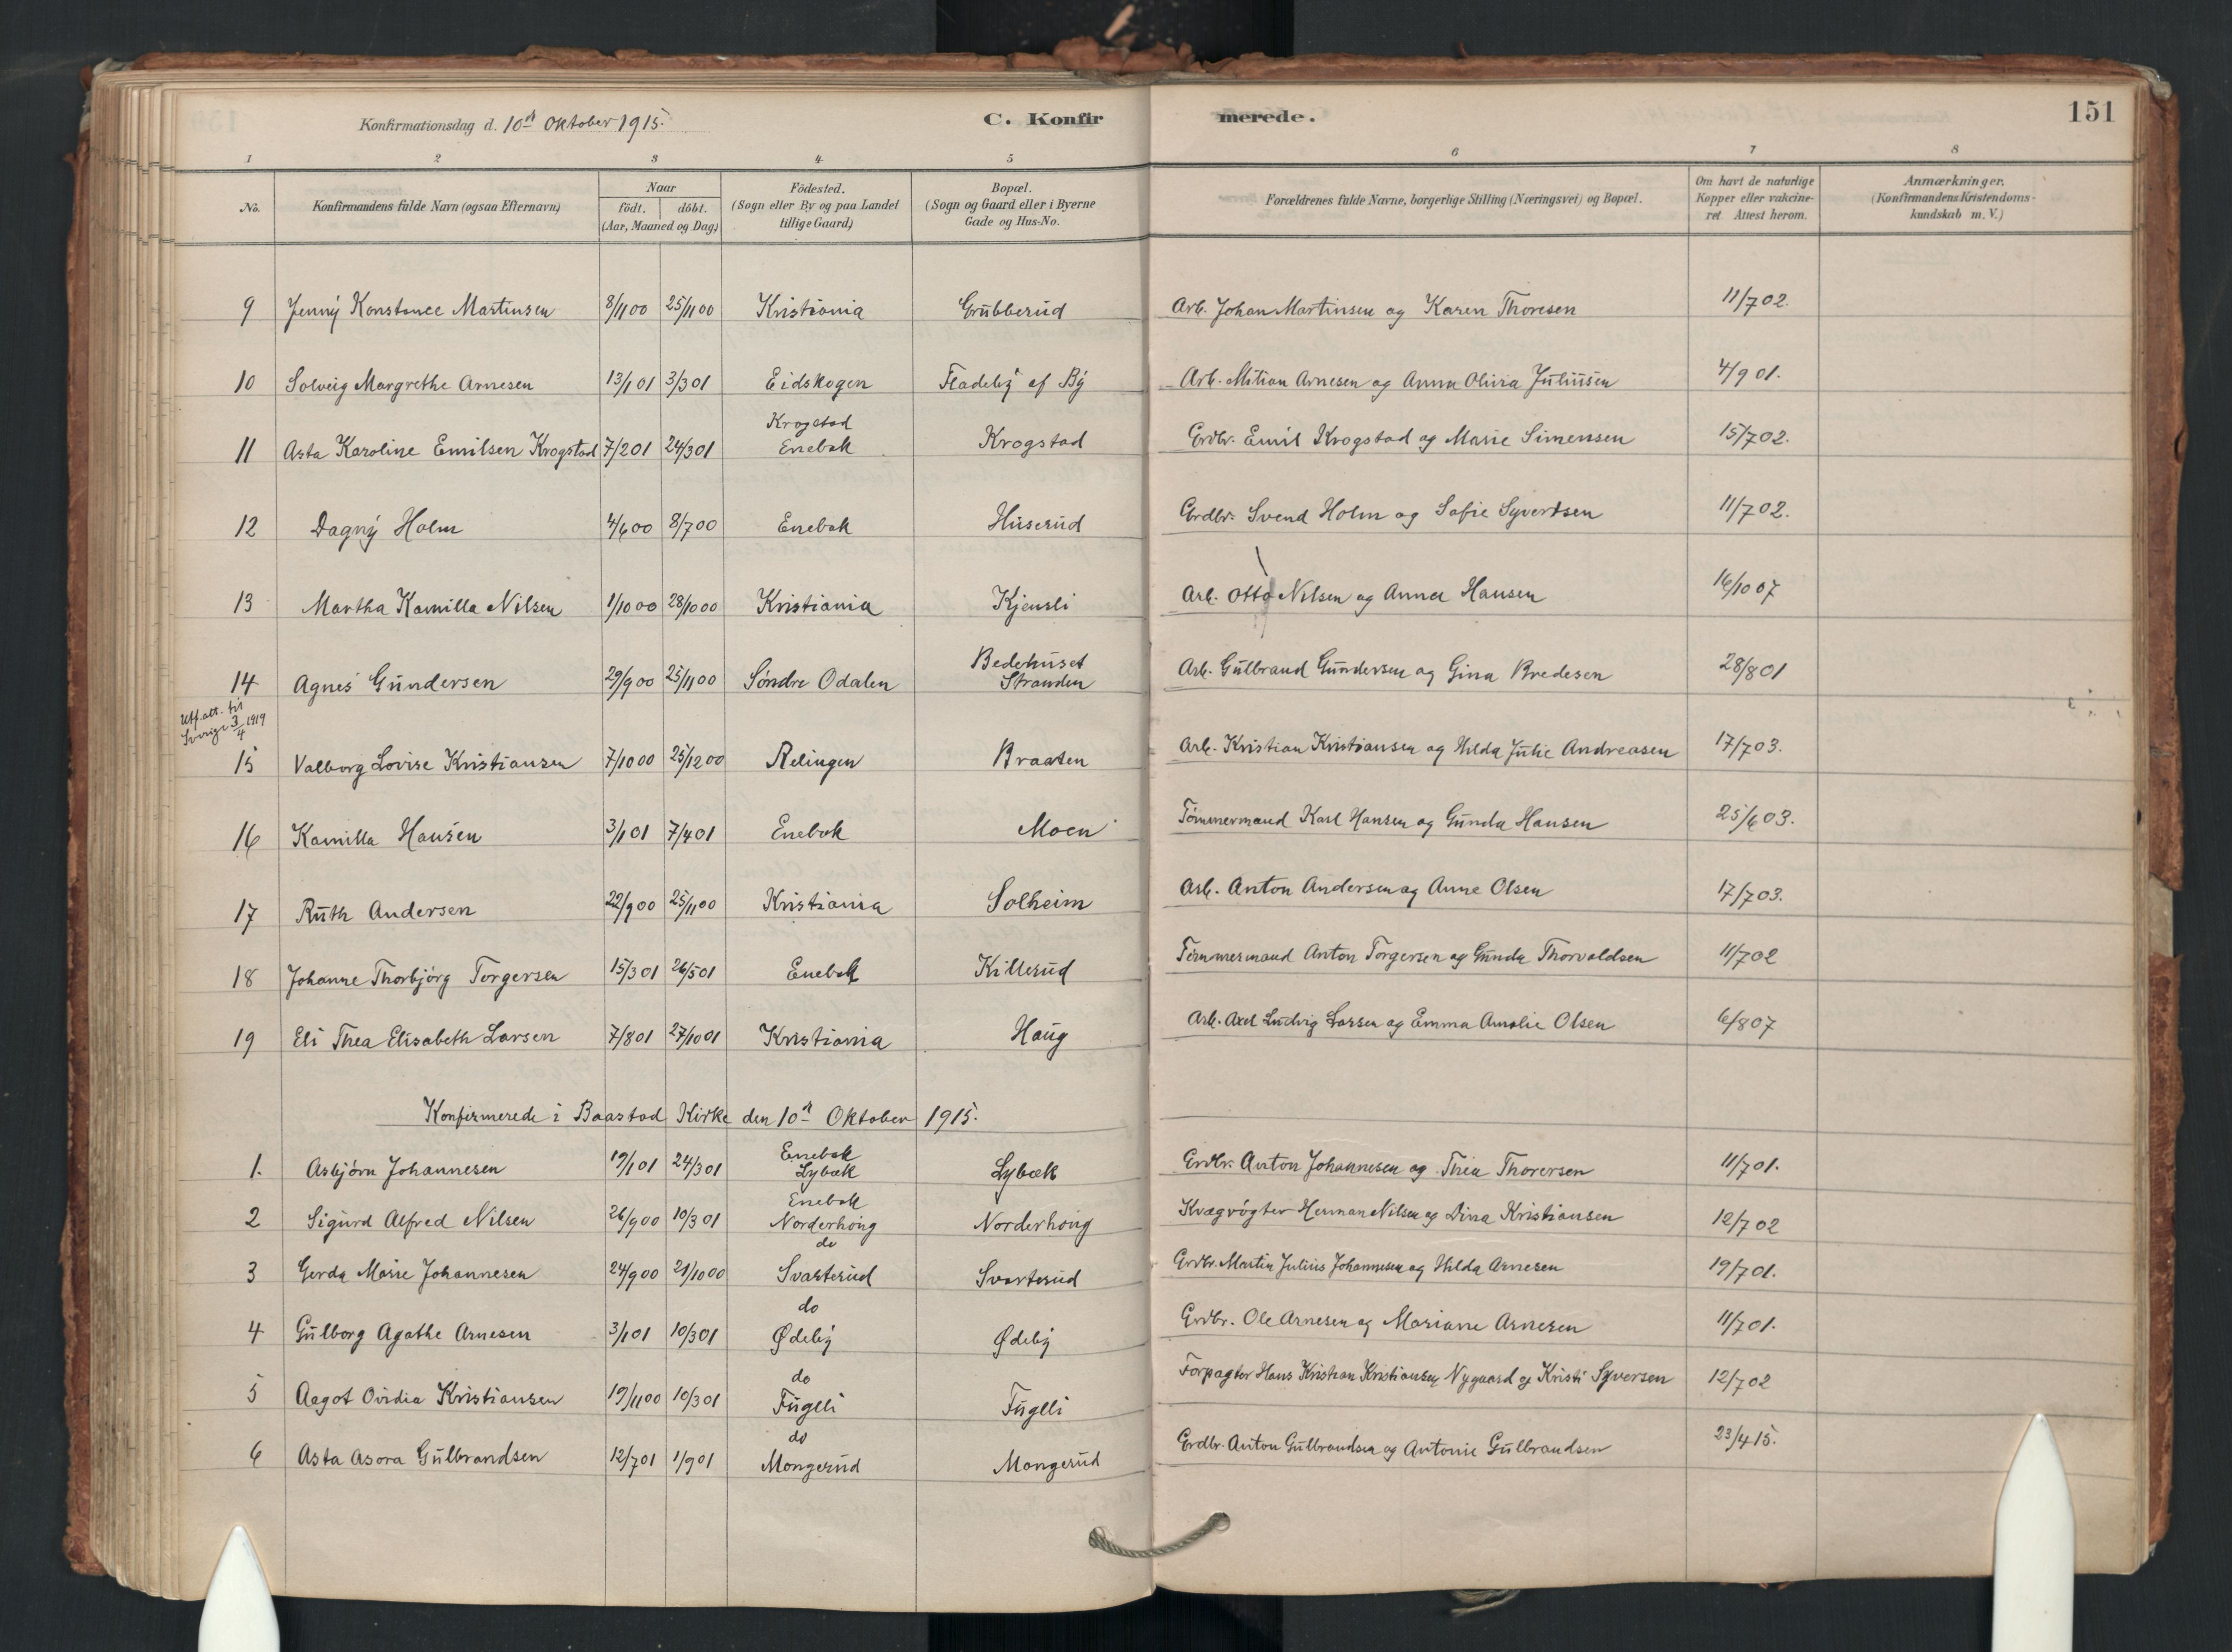 Konfirmationsdag d. 10de Oktober 1915. C. Konfirmerede. 151
1 2 3 4 5 6 7 8
No. Konfirmandens fulde Navn (ogsaa Efternavn) Naar födt. döbt. (Aar, Maaned og Dag) Födested. (Sogn eller By og paa Landet tillige Gaard) Bopæl. (Sogn og Gaard eller i Byerne Gade og Hus-No. Forældrenes fulde Navne, borgerlige Stilling (Næringsvei) og Bopæl. Om havt de naturlige Kopper eller vakcineret Attest herom. Anmærkninger. (Konfirmandens Kristendomskundskab m. V.)
9 Jenny Konstance Martinsen 8/11 00 25/11 00 Kristiania Grubberud Arb. Johan Martinsen og Karen Thoresen 11/7 02.
10 Solveig Margrethe Arnesen 13/1 01 3/3 01 Eidskogen Fladeby af By Arb. Mitian Arnesen og Anna Olivia Juliusen 4/9 01.
11 Asta Karoline Emilsen Krogstad 7/2 01 24/3 01 Krogstad Enebak Krogstad Grdbr. Emil Krogstad og Marie Simensen 15/7 02.
12 Dagny Holm 4/6 00 8/7 00 Enebak Huserud Grdbr. Svend Holm og Sofie Syvertsen 11/7 02.
13 Martha Kamilla Nilsen 1/10 00 28/10 00 Kristiania Kjensli Arb. Otto Nilsen og Anna Hansen 16/10 07
14 Agnes Gundersen 29/9 00 25/11 00 Söndre Odalen Bedehuset Stranden Arb. Gulbrand Gundersen og Gina Bredesen 28/8 01
Utf. att. til Sverige 3/4 1919
15 Valborg Lovise Kristiansen 7/10 00 25/12 00 Relingen Braaten Arb. Kristian Kristiansen og Hilda Julie Andreasen 17/7 03.
16 Kamilla Hansen 3/1 01 7/4 01 Enebak Moen Tömmermand Karl Hansen og Gunda Hansen 25/6 03.
17 Ruth Andersen 22/9 00 25/11 00 Kristiania Solheim Arb. Anton Andersen og Anne Olsen 17/7 03.
18 Johanne Thorbjörg Torgersen 15/3 01 26/5 01 Enebak Killerud Tömmermand Anton Torgersen og Gunda Thorvaldsen 11/7 02
19 Eli Thea Elisabeth Larsen 7/8 01 27/10 01 Kristiania Haug Arb. Axel Ludvig Larsen og Emma Amalie Olsen 6/8 07
Konfirmerede i Baastad Kirke den 10de Oktober 1915.
1. Asbjörn Johannesen 19/1 01 24/3 01 Enebak Lybæk Lybæk Grdbr. Anton Johannesen og Thea Thoresen 11/7 01.
2 Sigurd Alfred Nilsen 26/9 00 10/3 01 Enebak Norderhoug Norderhoug Kvægrögter Herman Nilsen og Dina Kristiansen 12/7 02
3 Gerda Marie Johannesen 24/9 00 21/10 00 do Svarterud Svarterud Grdbr. Martin Julius Johannesen og Hilda Arnesen 19/7 01.
4 Gulborg Agathe Arnesen 3/1 01 10/3 01 do Ødeby Ødeby Grdbr. Ole Arnesen og Mariane Arnesen 11/7 01.
5 Aagot Ovidia Kristiansen 19/11 00 10/3 01 do Fuglli Fuglli Forpagter Hans Kristian Kristiansen Nygaard og Kristi Syversen 12/7 02
6 Asta Asora Gulbrandsen 12/7 01 1/9 01 do Mangerud Mangerud Grdbr. Anton Gulbrandsen og Antonie Gulbrandsen 23/4 15.